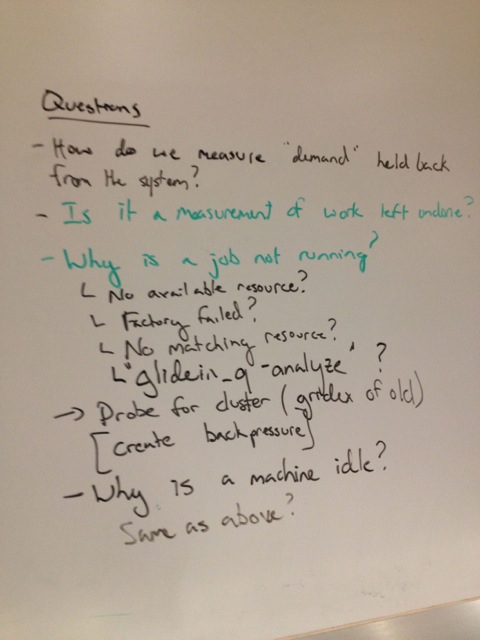 Questions
- How do we measure "demand" held back
from the system?
- Is it a measurement of work left undone?
- Why is a job not running?
└ No available resource?
└ Factory failed?
└ No matching resource?
└ "glidein_q-analyze" ?
→ Probe for cluster (gridex of old)
[create backpressure]
- Why is a machine idle?
Same as above?